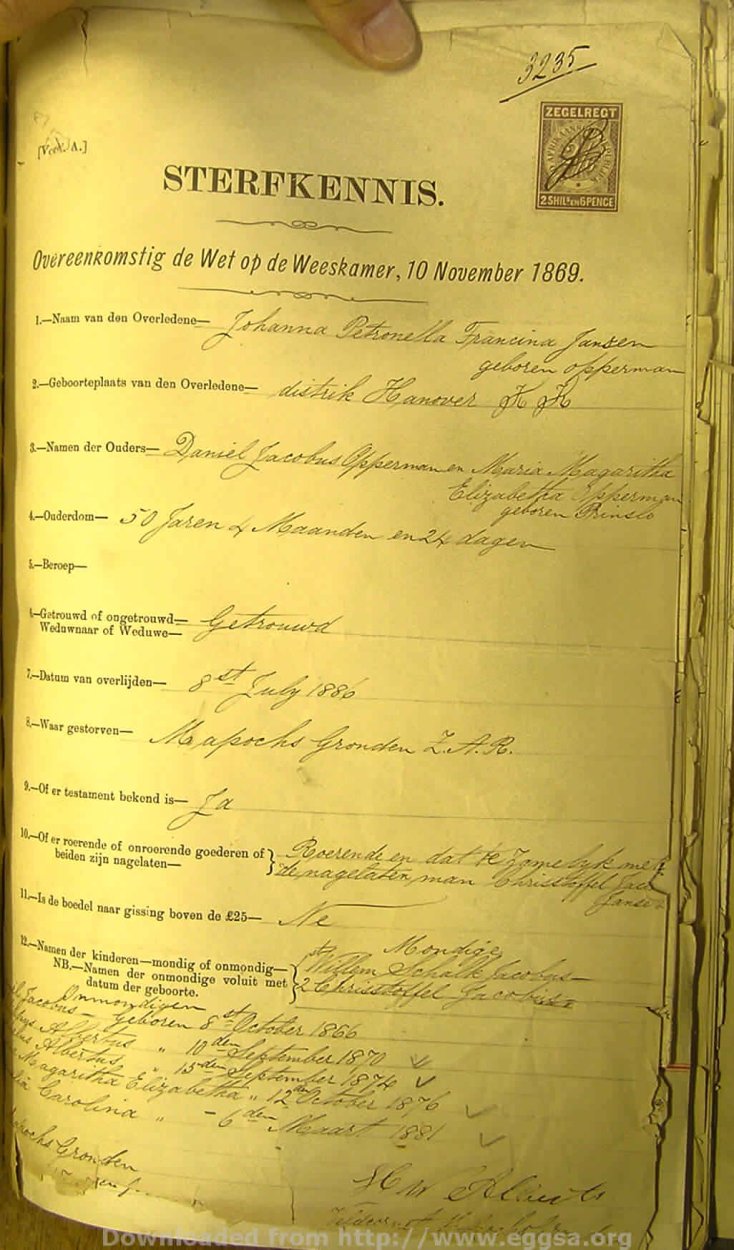 3235
[Verk. A.]
ZEGELREGT
2 SHILs EN 6 PENCE
STERFKENNIS.
Overeenkomstig de Wet op de Weeskamer, 10 November 1869.
1.—Naam van den Overledene— Johanna Petronella Francina Jansen
geboren opperman
2.—Geboorteplaats van den Overledene— distrik Hanover K K
3.—Namen der Ouders— Daniel Jacobus Opperman en Maria Magaritha
Elizabetha Opperman
geboren Prinslo
4.—Ouderdom— 50 Jaren 4 Maanden en 24 dagen
5.—Beroep—
6.—Getrouwd of ongetrouwd—
Weduwnaar of Weduwe— Getrouwd
7.—Datum van overlijden— 8st July 1886
8.—Waar gestorven— Mapochs Gronden Z.A.R.
9.—Of er testament bekend is— Ja
10.—Of er roerende of onroerende goederen of
beiden zijn nagelaten— Roerende en dat te zamelyk met
de nagelaten man Christoffel Jac
Jansen
11.—Is de boedel naar gissing boven de £25— Ne
12.—Namen der kinderen—mondig of onmondig—
NB.—Namen der onmondige voluit met
datum der geboorte.
Mondige
Willem Schalk Jacobus
2 Chrisstoffel Jacobus
Onmondigen
Jacobus - geboren 8st October 1866
Albertus " 10den September 1870
Albertus, " 15den September 1874
Magaritha Elizabetha " 12den October 1876
Carolina " - 6den Maart 1881
Gronden
Downloaded from http://www.eggsa.org